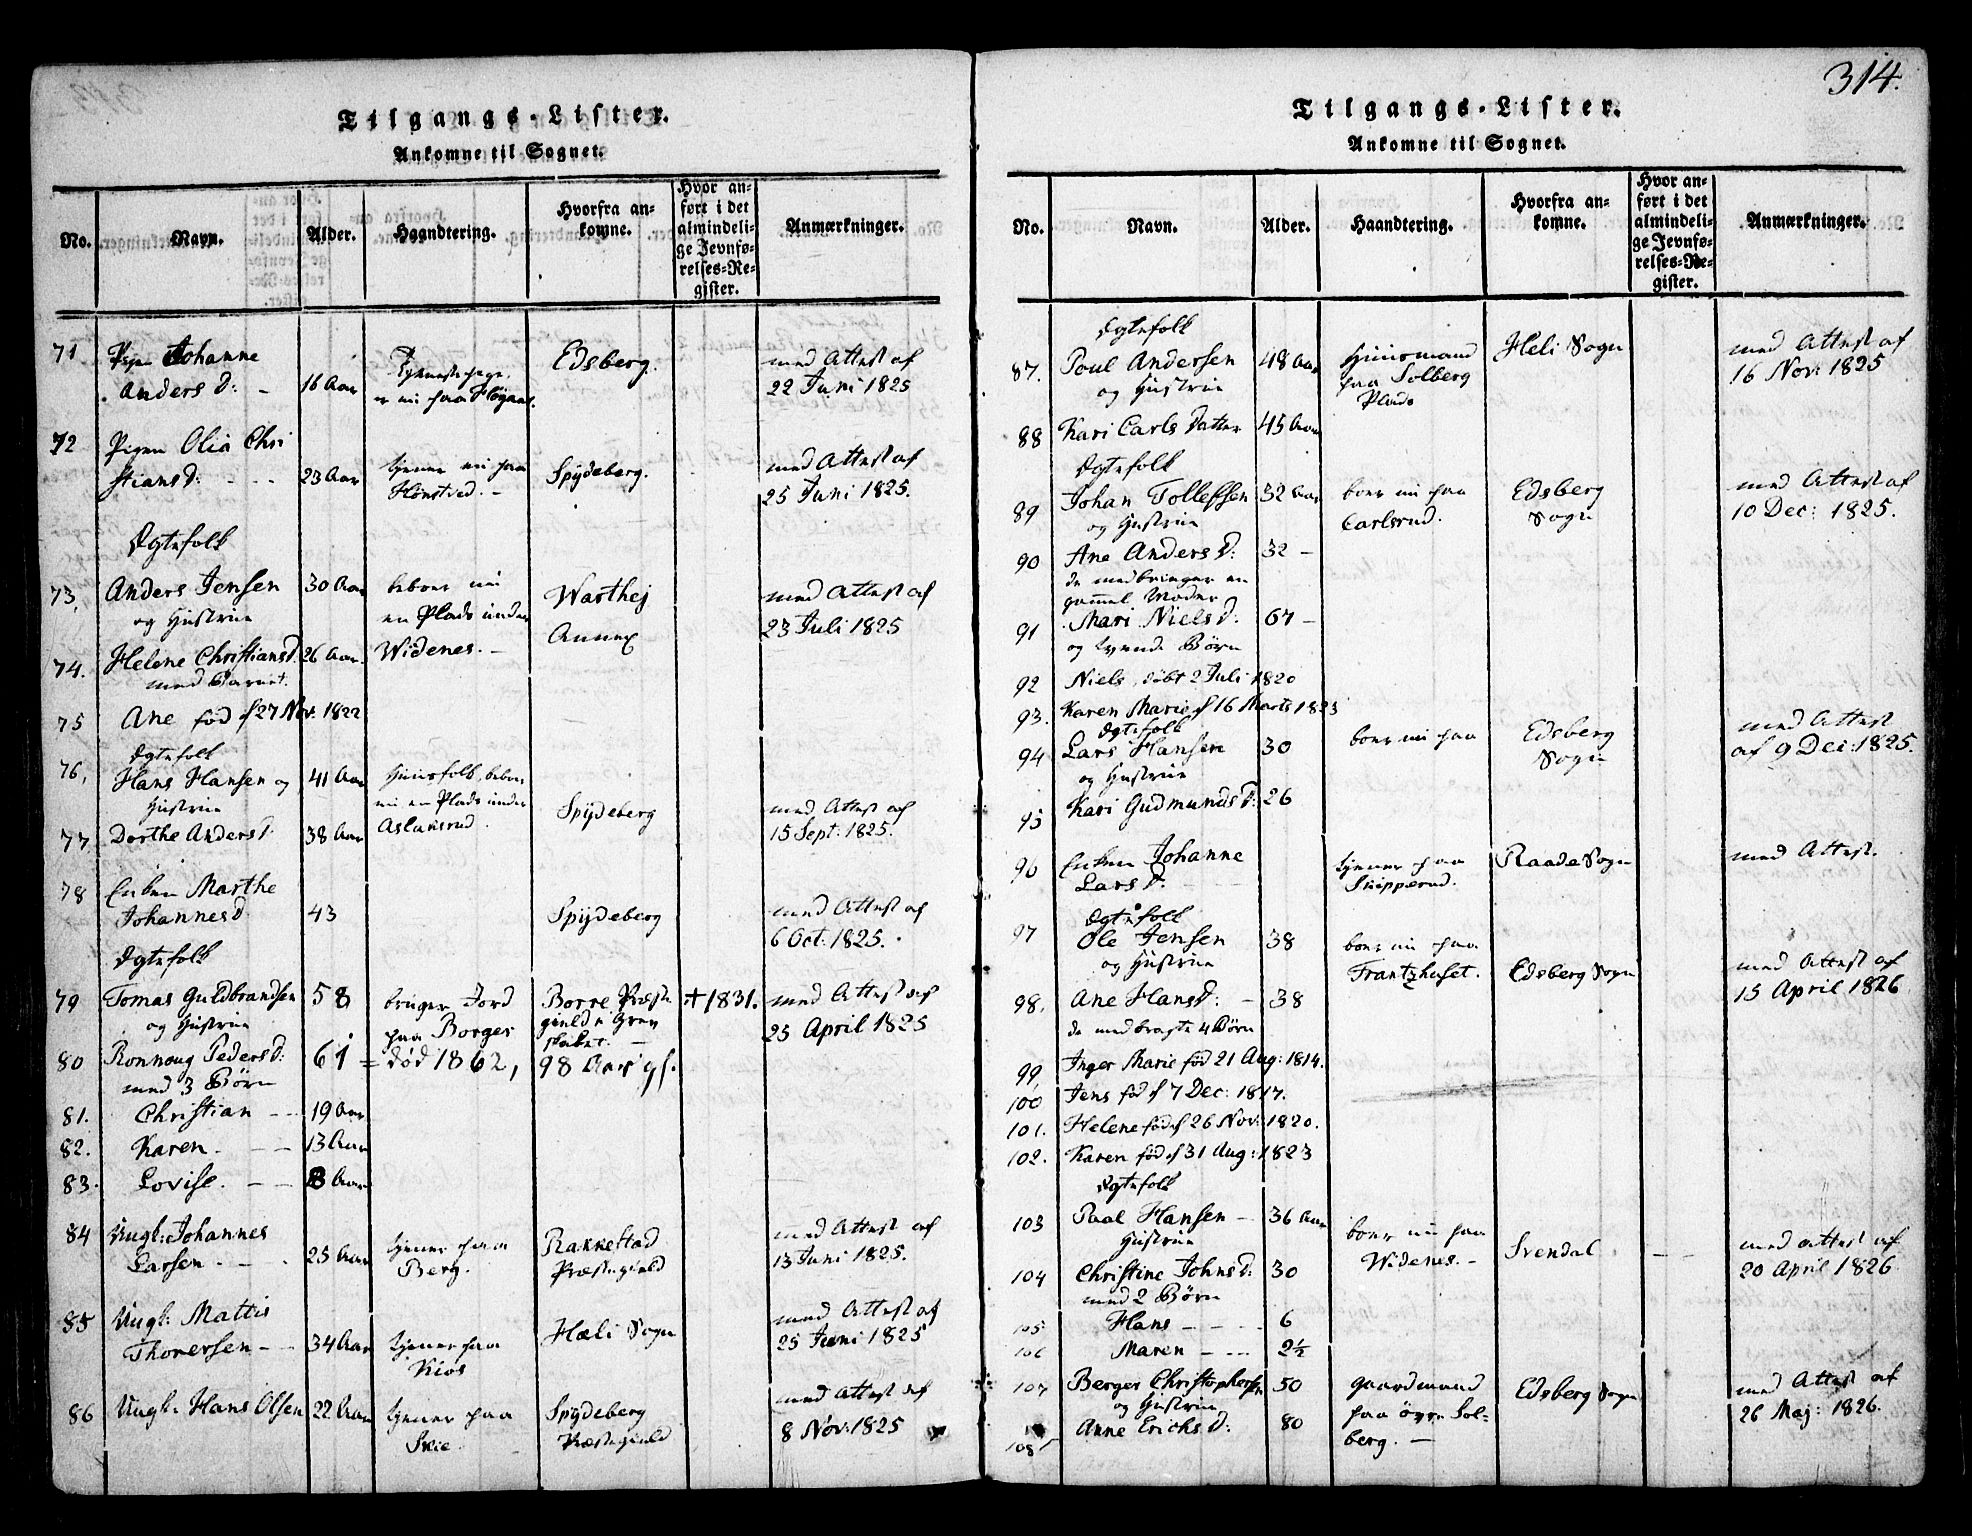 314.
Tilgangs-Lister.
Ankomne til Sognet.
No. Navn. Alder. Haandtering. Hvorfra ankomne. Hvor anført i det almindelige Jevnførelses-Register. Anmærkninger.
71 Pigen Johanne
Anders D: - 16 Aar Tjenestepige. er nu paa Edsberg. med Attest af
22 Juni 1825
72 Pigen Olia Chri
stiansD: - - - 23 Aar tjener nu paa Spydeberg. med Attest af
Hönstved. - 25 Juni 1825.
Egtefolk
73, Anders Jensen 30 Aar beboer nu Warthej med Attest af
og Hustrue en Plads under Annex 23 Juli 1825
74. Helene ChristiansD. 26 Aar. Widenes. -
med Barnet.
75 Ane fød d 27 Nov: 1822
Egtefolk
76, Hans Hansen og 41 Aar Huusfolk, beboer
Hustrue nu en Plads under Spydeberg med Attest af
77. Dorthe AndersD: 38 Aar Aslaksrud. 15 Sept: 1825.
78 Enken Marthe
JohannesD. 43 Spydeberg med Attest af
6 Oct: 1825.
Egtefolk
79 Tomas Guldbrandsen 58 bruger Jord Borre Præste ✝ 1831. med Attest af
og Hustrue paa Borger gield i Grev 25 April 1825
skabet. -
80 Ronnoug PedersD: 61 = død 1862, 98 Aar gl.
med 3 Börn
81. Christian - - 19 Aar
82. Karen. - - 13 Aar
83. Lovise. - - 8 Aar
84 Ungk: Johannes
Larsen. - - 25 Aar tjener paa Rakkestad med Attest af
Berg. Præstegield 13 Juni 1825.
85 Ungk: Mattis
Thoversen - - 34 Aar tjener paa Hæli Sogn med Attest af
Kios 25 Juni 1825
86 Ungk: Hans Olsen 22 Aar tjener paa Spydeberg med Attest af
Skie. Præstegield 8 Nov: 1825
Tilgangs-Lister.
Ankomne til Sognet.
No. Navn. Alder. Haandtering. Hvorfra ankomne. Hvor anført i det almindelige Jevnførelses-Register. Anmærkninger.
Egtefolk
87. Poul Andersen 48 Aar Huusmand Heli Sogn med Attest af
og Hustrue paa Solberg 16 Nov: 1825
Plads
88 Kari Carls Datter 45 Aar
Egtefolk
89 Johan Tollefsen 32 Aar boer nu paa Edsberg med Attest af
og Hustrue Carlsrud. Sogn 10 Dec: 1825.
90 Ane AndersD: 32 -
de medbringer en
gammel Moder
91 Mari NielsD: 67 -
og tvende Börn
92 Niels, døbt 2 Juli 1820
93. Karen Marie d 16 Marts 1823
Egtefolk
94 Lars Hansen 30 boer nu paa Edsberg med Attest
og Hustrue Sogn af 9 Dec: 1825.
95 Kari GudmundsD: 26
96 Enken Johanne tjener paa Raade Sogn med Attest.
LarsD. - - Skipperud.
Egtefolk
97 Ole Jensen 38 boer nu paa
og Hustrue Frantzhuset. Edsberg Sogn med Attest af
98. Ane HansD: - 38 15 April 1826
de medbragte 4 Börn
99 Inger Marie fød 21 Aug: 1814.
100 Jens fød d 7 Dec: 1817.
101. Helene fød d 26 Nov: 1820.
102. Karen fød d 31 Aug: 1823
Egtefolk
103 Paal Hansen - 36 Aar boer nu paa
Hustrue Widenes. - Svendal - - med Attest af
104 Christine JohnsD: 30 20 April 1826
med 2 Börn
105 Hans - - - 6
106 Maren - - - 2½
107 Berger Christophersen 50 Gaardmand Edsberg Sogn med Attest af
og Hustrue paa øvre Sol- 26 Maj: 1826.
108 Anne ErichsD: 80 berg. -